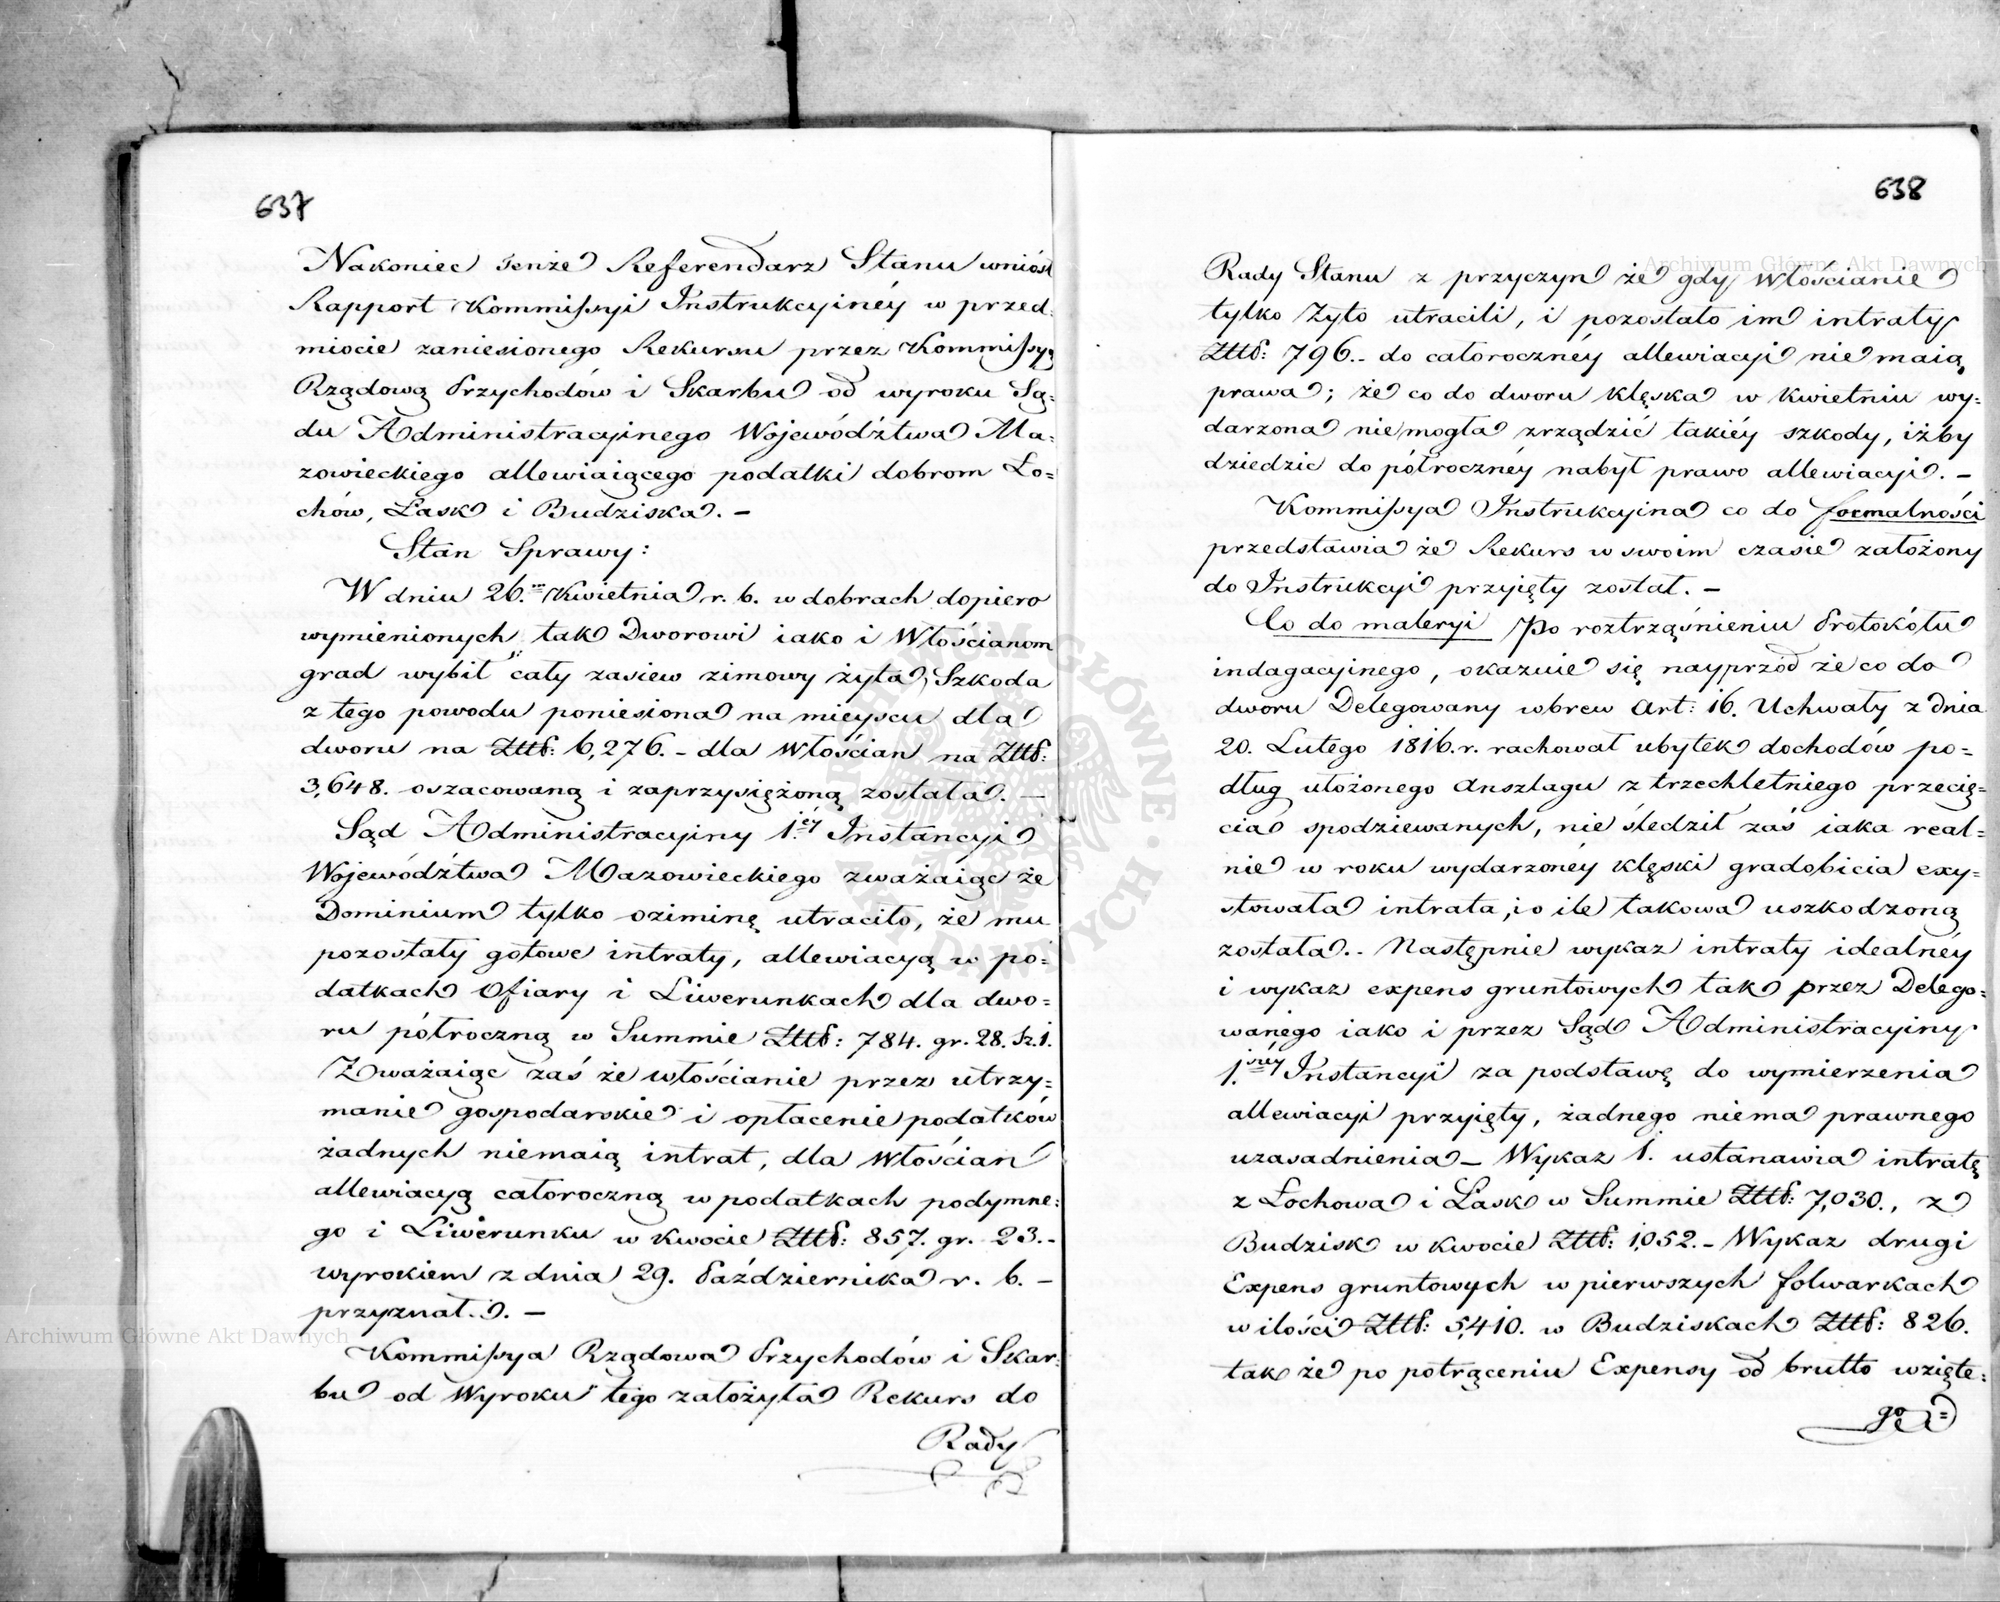 637
Nakoniec tenże Referendarz Stanu wniósł
Rapport Kommissyi Instrukcyinéy w przed:
miocie zaniesionego Rekursu przez Kommissyą
Rządową Przychodów i Skarbu od wyroku Są:
du Administracyinego Województwa Ma:
zowieckiego allewiaiącego podatki dobrom Ło=
chów, Łask i Budziska. –
Stan Sprawy:
W dniu 26. Kwietnia r. b. w dobrach dopiero
wymienionych tak Dworowi iako i Włościanom
grad wybił cały zasiew zimowy żyta, Szkoda
z tego powodu poniesiona na mieyscu dla
dworu na Zttß: 6,276. – dla Włościan na Zttß:
3,648. oszacowaną i zaprzysiężoną została. —
Sąd Administracyiny 1.éy Instancyi
Województwa Mazowieckiego zważaiąc że
Dominium tylko oziminę utraciło, że mu
pozostały gotowe intraty, allewiacyą w po:
datkach Ofiary i Liwerunkach dla dwo:
ru półroczną w Summie Zttß: 784. gr. 28. sz. 1.
Zważaiąc zaś że włościanie przez utrzy:
manie gospodarskie i opłacenie podatków
żadnych niemaią intrat, dla Włościan
allewiacyą całoroczną w podatkach podymne:
go i Liwerunku w kwocie Zttß: 857. gr. 23. –
wyrokiem z dnia 29. Października r. b. –
przyznał. –
Kommissya Rządowa Przychodów i Skar:
bu od Wyroku tego założyła Rekurs do
Rady
638
Rady Stanu z przyczyn że gdy Włościanie
tylko Żyto utracili, i pozostało im intraty
Zttß: 796. – do całorocznéy allewiacyi nie maią
prawa; że co do dworu klęska w Kwietniu wy=
darzona nie mogła zrządzić takiéy szkody, iżby
dziedzic do półrocznéy nabył prawo allewiacyi. –
Kommissya Instrukcyina co do formalności
przedstawia że Rekurs w swoim czasie założony
do Instrukcyi przyięty został. –
Co do materyi Po roztrząśnieniu Protokółu
indagacyjnego, okazuie się nayprzód że co do
dworu Delegowany wbrew Art: 16. Uchwały z dnia
20. Lutego 1816. r. rachował ubytek dochodów po=
dług ułożonego Anszlagu z trzechletniego przecię=
cia spodziewanych, nie śledził zaś iaka real=
nie w roku wydarzonéy klęski gradobicia exy=
stowała intrata, i o ile takowa uszkodzoną
została. – Następnie wykaz intraty idealnéy
i wykaz expens gruntowych tak przez Delego=
wanego iako i przez Sąd Administracyiny
1.széy Instancyi za podstawę do wymierzenia
allewiacyi przyięty, żadnego niema prawnego
uzasadnienia – Wykaz 1. ustanawia intratę
z Łochowa i Łask w Summie Zttß: 7,030., z
Budzisk w kwocie Zttß: 1,052. – Wykaz drugi
Expens gruntowych w pierwszych folwarkach
w ilości Zttß: 5,410. w Budziskach Zttß: 826.
tak że po potrąceniu Expensy od brutto wzięte:
go =
Archiwum Główne Akt Dawnych
Archiwum Główne Akt Dawnych
ARCHIWUM GŁÓWNE AKT DAWNYCH